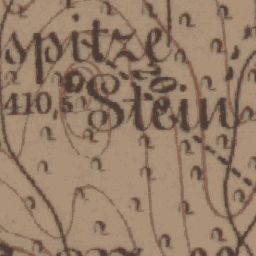 spitze
410,5 Stein